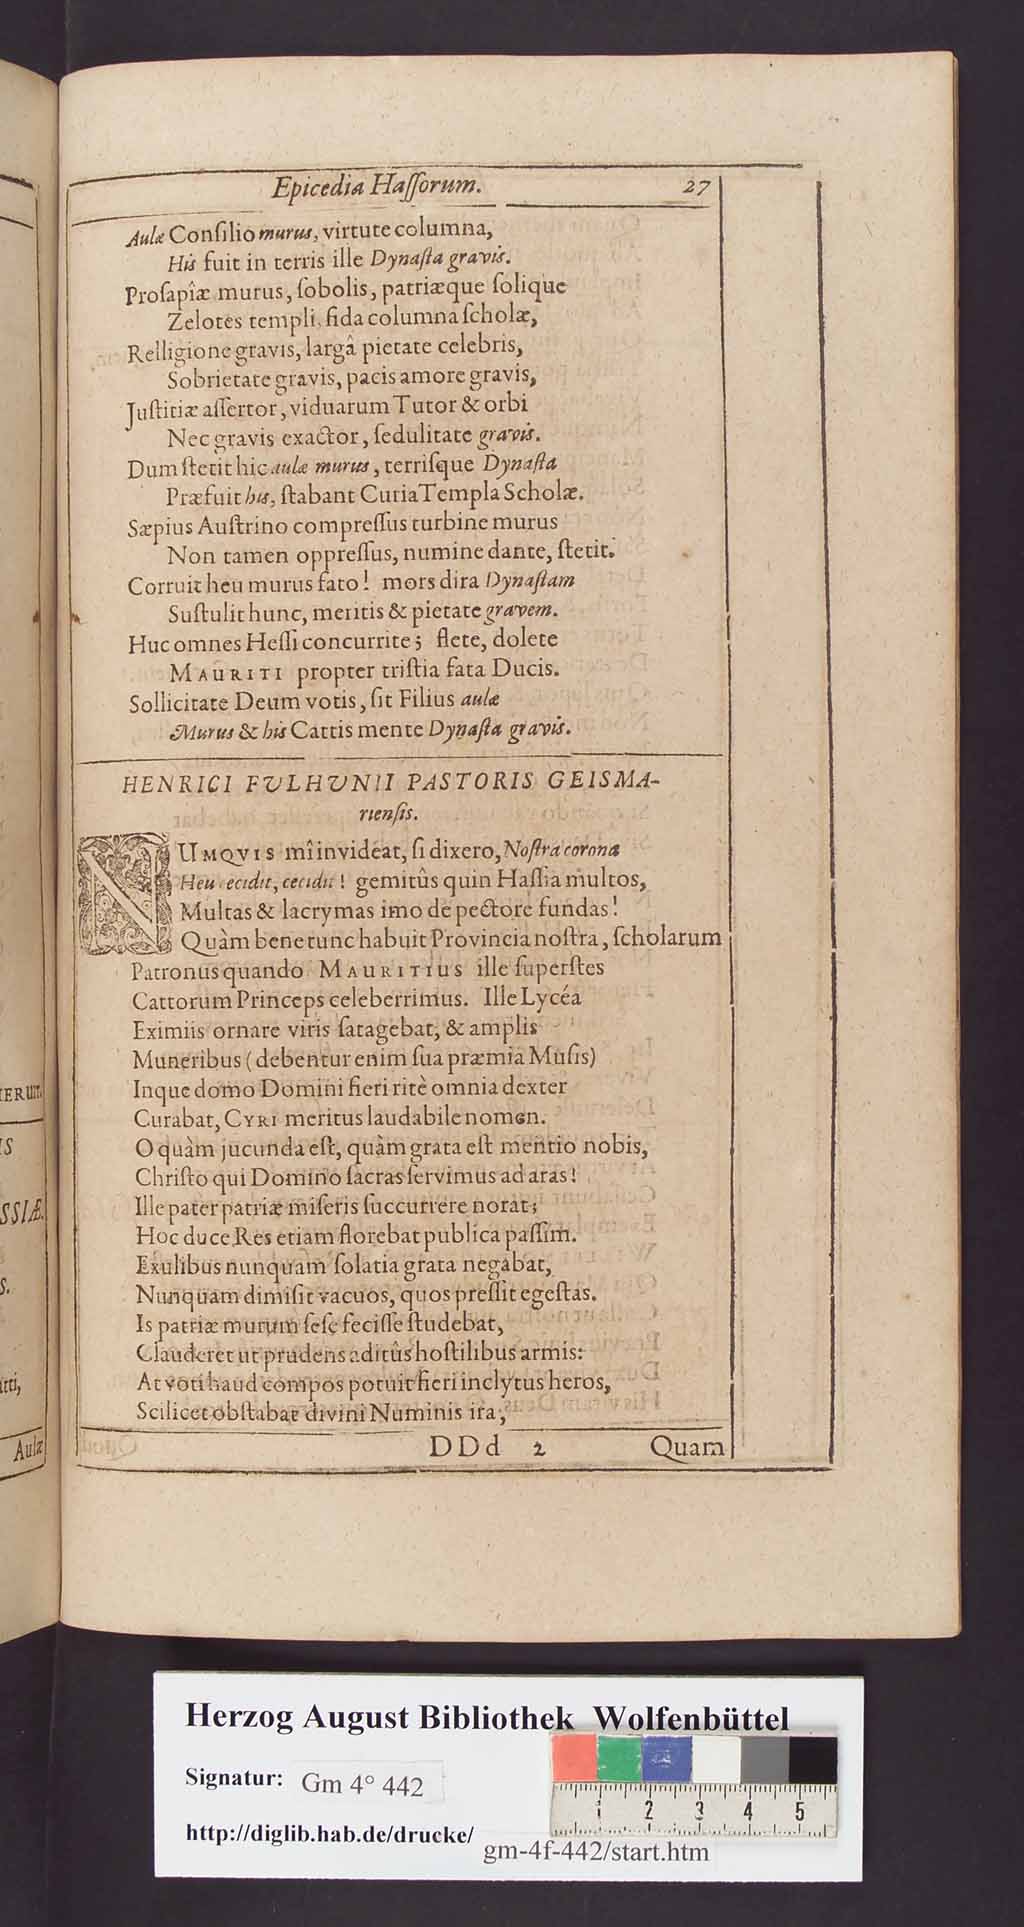 Epicedia Haſſorum. 27
Aulæ Conſilio murus, virtute columna,
His fuit in terris ille Dynaſta gravis.
Proſapîæ murus, ſobolis, patriæque ſolique
Zelotes templi, fida columna ſcholæ,
Relligione gravis, largâ pietate celebris,
Sobrietate gravis, pacis amore gravis,
Juſtitiæ aſſertor, viduarum Tutor & orbi
Nec gravis exactor, ſedulitate gravis.
Dum ſtetit hic aulæ murus, terriſque Dynaſta
Præfuit his, ſtabant Curia Templa Scholæ.
Sæpius Auſtrino compreſſus turbine murus
Non tamen oppreſſus, numine dante, ſtetit.
Corruit heu murus fato! mors dira Dynaſtam
Suſtulit hunc, meritis & pietate gravem.
Huc omnes Heſſi concurrite; flete, dolete
MAURITI propter triſtia fata Ducis.
Sollicitate Deum votis, ſit Filius aulæ
Murus & his Cattis mente Dynaſta gravis.
HENRICI FVLHVNII PASTORIS GEISMA-
rienſis.
NUMQVIS mî invideat, ſi dixero, Noſtra corona
Heu cecidit, cecidit! gemitûs quin Haſſia multos,
Multas & lacrymas imo de pectore fundas!
Quàm bene tunc habuit Provincia noſtra, ſcholarum
Patronus quando MAURITIUS ille ſuperſtes
Cattorum Princeps celeberrimus. Ille Lycéa
Eximiis ornare viris ſatagebat, & amplis
Muneribus (debentur enim ſua præmia Muſis)
Inque domo Domini fieri ritè omnia dexter
Curabat, CYRI meritus laudabile nomen.
O quàm jucunda eſt, quàm grata eſt mentio nobis,
Chriſto qui Domino ſacras ſervimus ad aras!
Ille pater patriæ miſeris ſuccurrere norat;
Hoc duce Res etiam florebat publica paſſim.
Exulibus nunquam ſolatia grata negabat,
Nunquam dimiſit vacuos, quos preſſit egeſtas.
Is patriæ murum ſeſe feciſſe ſtudebat,
Clauderet ut prudens aditûs hoſtilibus armis:
At voti haud compos potuit fieri inclytus heros,
Scilicet obſtabat divini Numinis ira,
DDd 2 Quam
IERUNT.
IS
SSIÆ.
S.
Aulæ
Herzog August Bibliothek Wolfenbüttel
Signatur: Gm 4° 442
1 2 3 4 5
http://diglib.hab.de/drucke/ gm-4f-442/start.htm